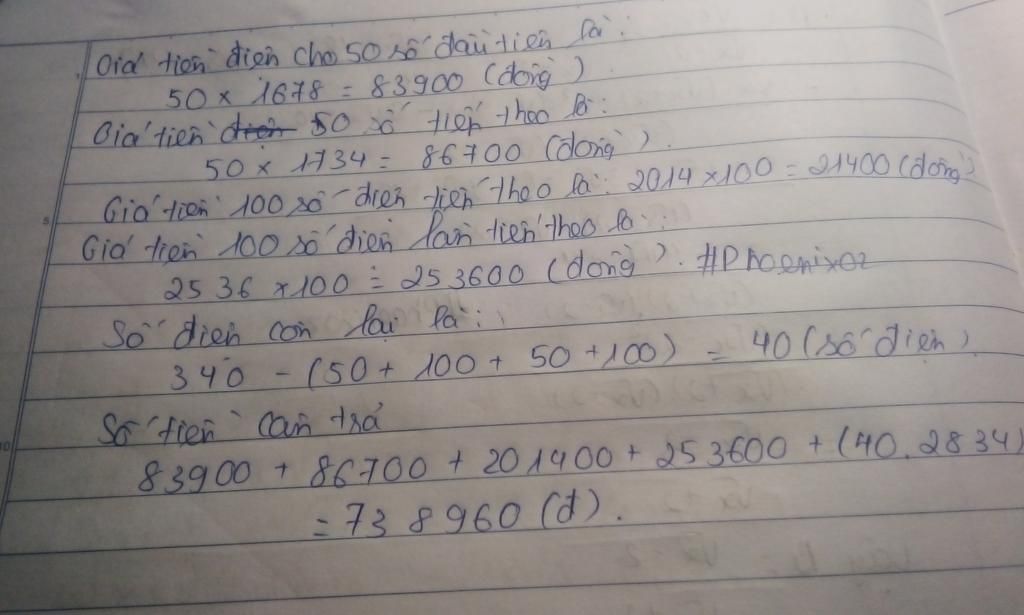 Giá tiền điện cho 50 số đầu tiên là:
50 × 1678 = 83900 (đồng)
Giá tiền điện 50 số tiếp theo là:
50 × 1734 = 86700 (đồng).
Giá tiền 100 số điện tiếp theo là: 2014 × 100 = 21400 (đồng)
Giá tiền 100 số điện lần tiếp theo là:
2536 × 100 = 253600 (đồng). #Phoenixor
Số điện còn lại là:
340 - (50 + 100 + 50 + 100) = 40 (số điện)
Số tiền cần trả
83900 + 86700 + 201400 + 253600 + (40.2834)
= 738960 (đ).